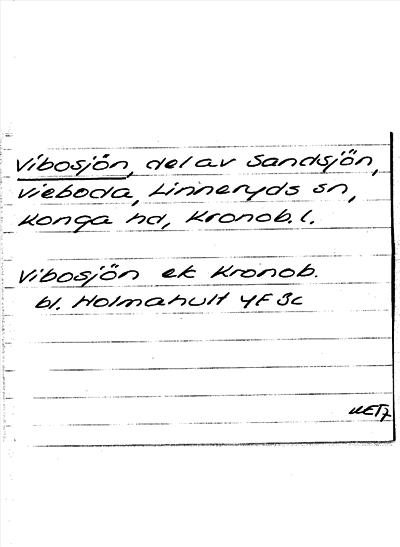 Vibosjön, del av Sandsjön,
Vieboda, Linneryds sn,
Konga hd, Kronob. l.
Vibosjön ek Kronob.
bl. Holmahult 4F 3c